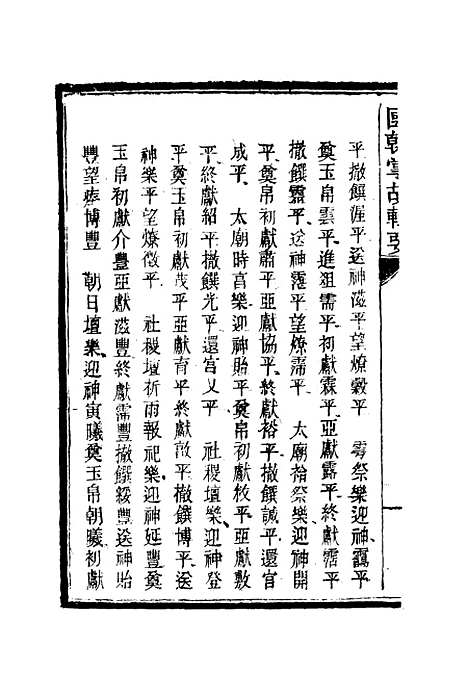 國朝掌故輯要
平撤饌渥平送神滋平望燎穀平　雩祭樂迎神靄平
奠玉帛雲平進俎需平初獻霖平亞獻露平終獻霑平
撤饌靈平送神霮平望燎霈平　太廟祫祭樂迎神開
平奠帛初獻肅平亞獻協平終獻裕平撤饌諴平還宫
成平　太廟時宫樂迎神貽平奠帛初獻敉平亞獻敷
平終獻紹平撤饌光平還宫乂平　社稷壇樂迎神登
平奠玉帛初獻茂平亞獻育平終獻敦平撤饌博平送
神樂平望燎徵平　社稷壇祈雨報祀樂迎神延豐奠
玉帛初獻介豐亞獻滋豐終獻霈豐撤饌綏豐送神貽
豐望瘞博豐　朝日壇樂迎神寅曦奠玉帛朝曦初獻